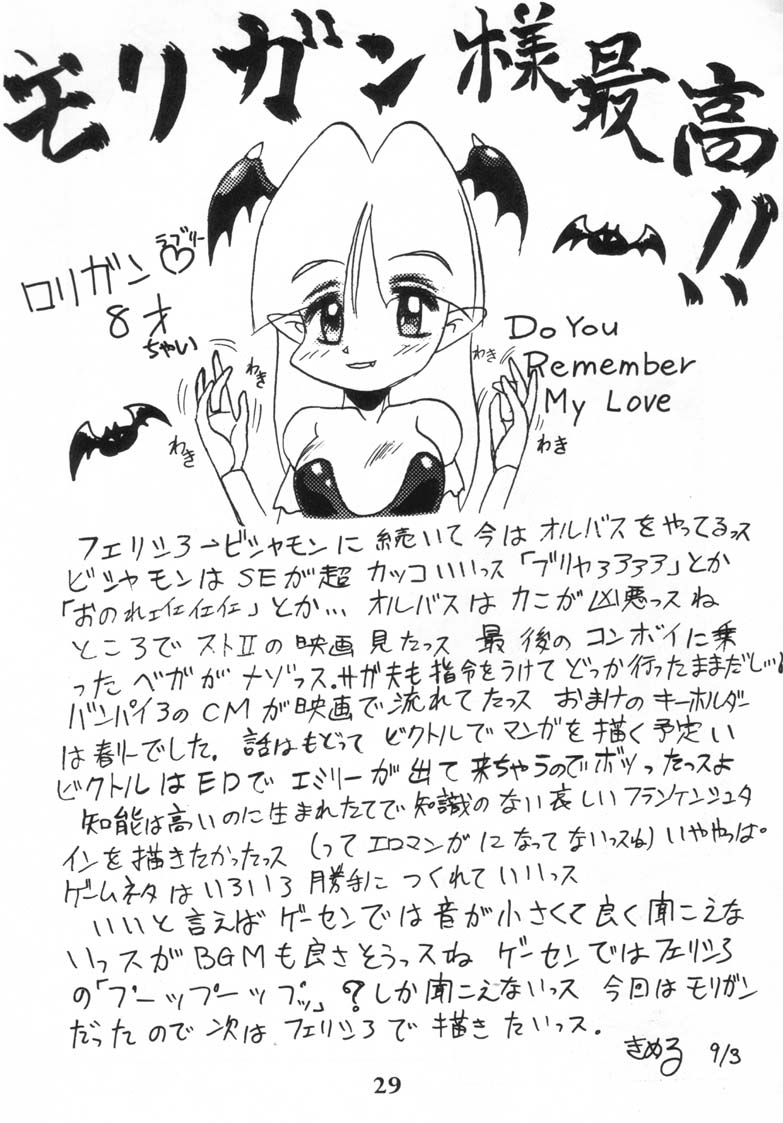 モリガン様最高!!
ロリガン♡
ラブリー
8才
ちゃい
わき
わき
わき
わき
Do You
Remember
My Love
フェリシろ→ビシャモンに続いて今はオルバスをやってるっス
ビシャモンはSEが超カッコいいっス「ブリャろアアア」とか
「おのれェイイイイ」とか… オルバスはカニが凶悪っスね
ところでストⅡの映画見たっス 最後のコンボイに乗
ったベガがナゾっス。サガ夫も指令をうけてどっか行ったままだし…
バンパイろのCMが映画で流れてたっス おまけのキーホルダー
は春リーでした。話はもどってビクトルでマンガを描く予定い
ビクトルはEDでエミリーが出て来ちゃうのでボツったっスよ
知能は高いのに生まれたてで知識のない哀しいフランケンシュタ
インを描きたかったっス (ってエロマンガになってないっスね)いややっぱ。
ゲームネタはいろいろ勝手につくれていいっス
いいと言えばゲーセンでは音が小さくて良く聞こえな
いっスがBGMも良さそうっスね ゲーセンではフェリシろ
の「プーップーップッ」?しか聞こえないっス 今回はモリガン
だったので次はフェリシろで描きたいっス。
きめる 9/3
29